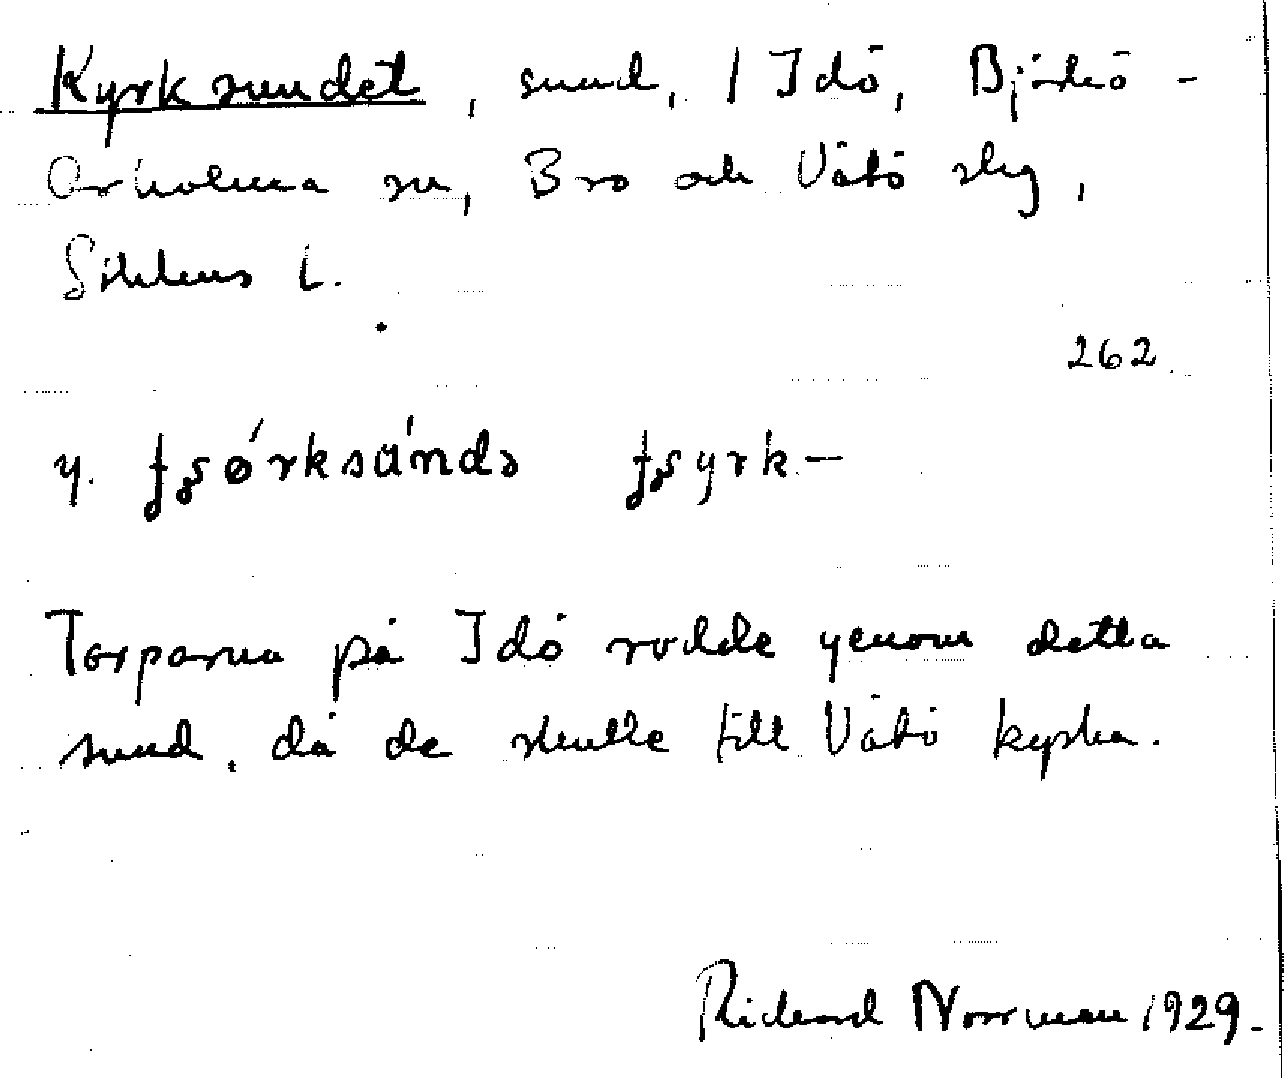 Kyrksundet, sund, / Idö, Björkö-
Arholma sn, Bro och Vätö slg,
Sthlms L.
262.
y. ʈʂørksündə ʈʂyrk–
Torparna på Idö rodde genom detta
sund, då de skulle till Vätö kyrka.
Rickard Norrman 1929.